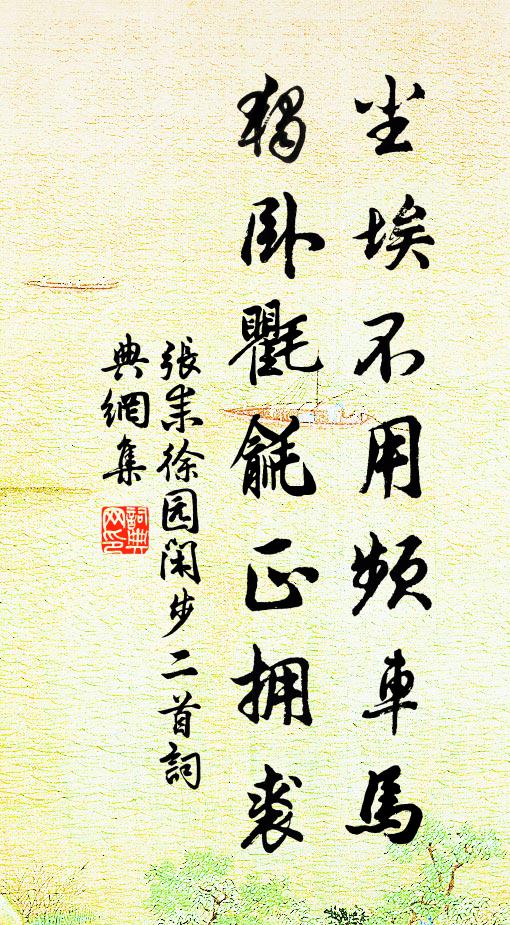 尘埃不用频車馬
獨卧氍毹正拥裘
張耒徐园闲步二首詞
典網集
詞典网印